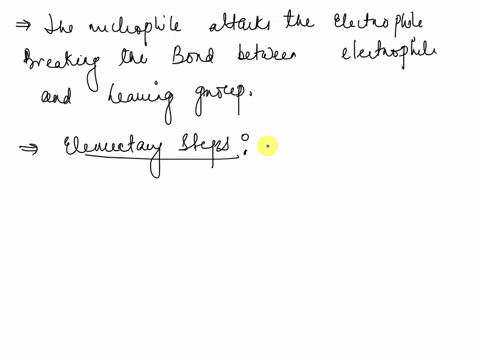 ⇒ The nucleophile attacks the Electrophile
Breaking the Bond between electrophile
and leaving group.
⇒ Elementary Steps :